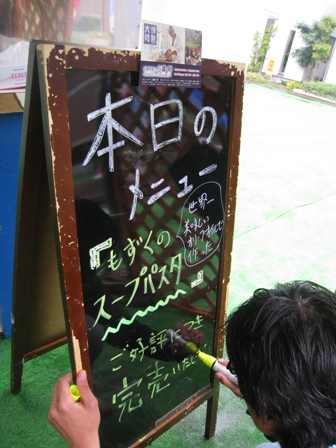 本日の
メニュー
『もずくの
スープパスタ』
世界一
美味しい
作った
ご好評につき
完売いたし